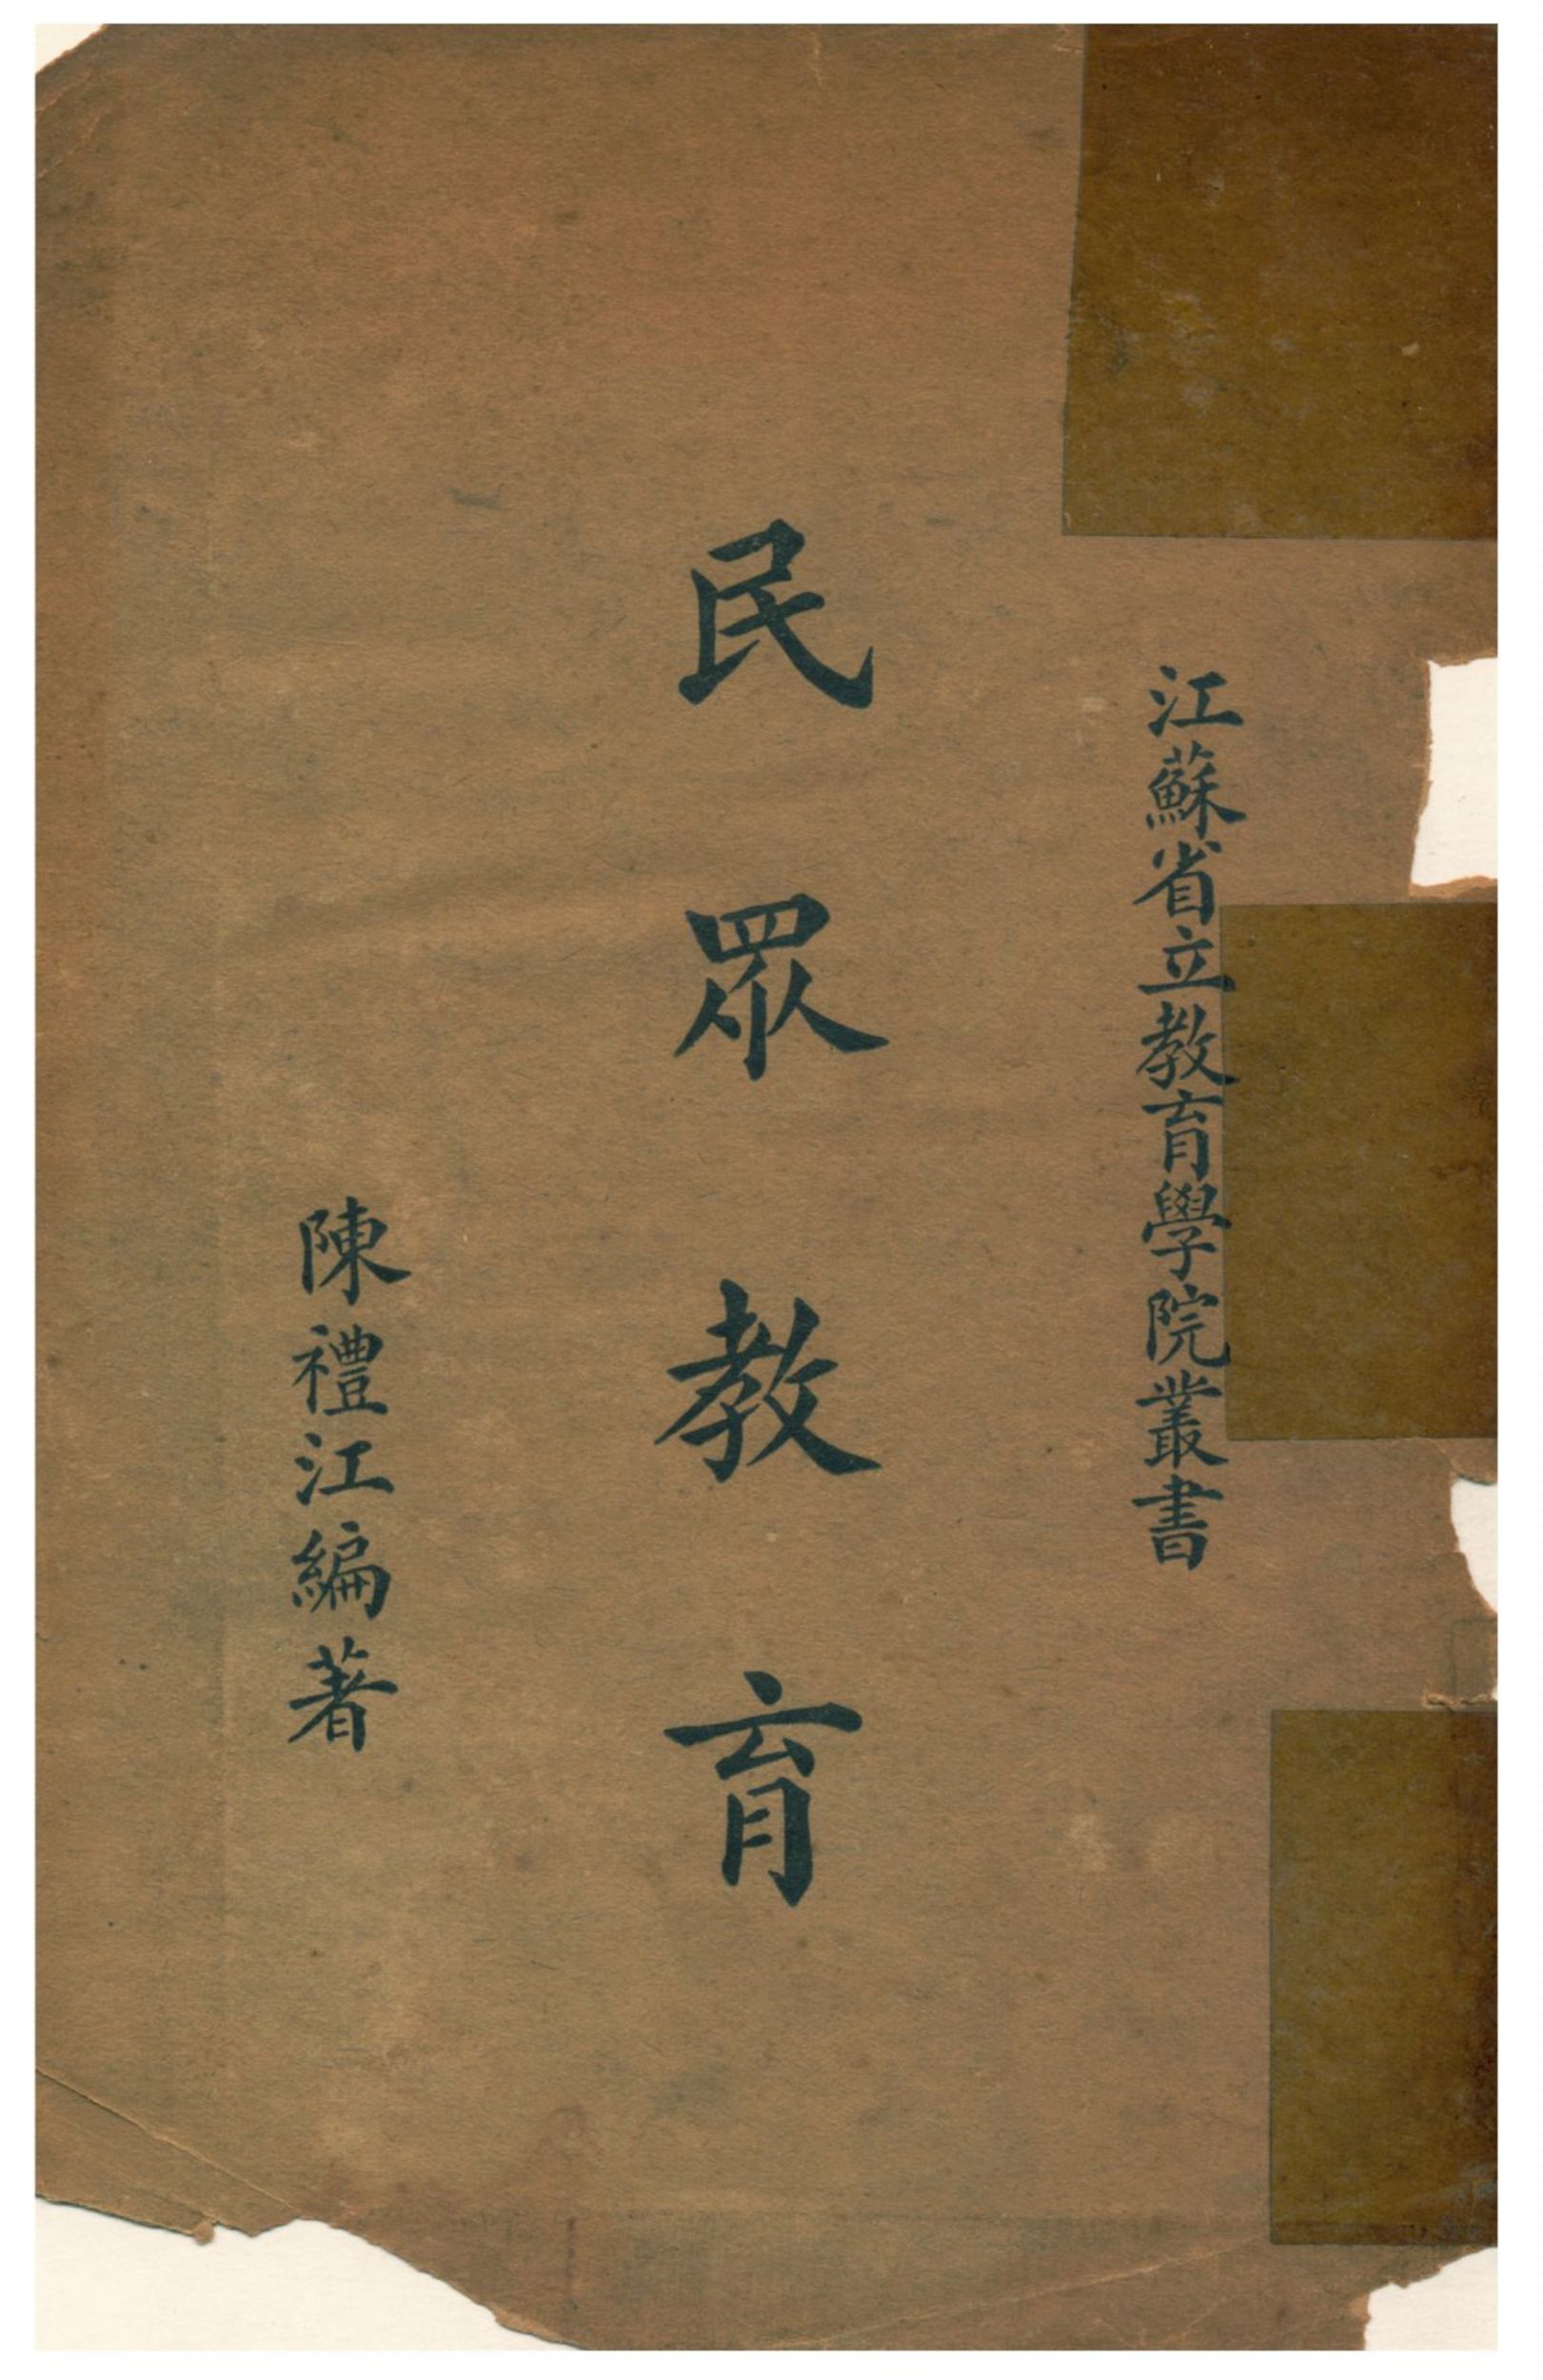 江蘇省立教育學院叢書
民眾教育
陳禮江編著